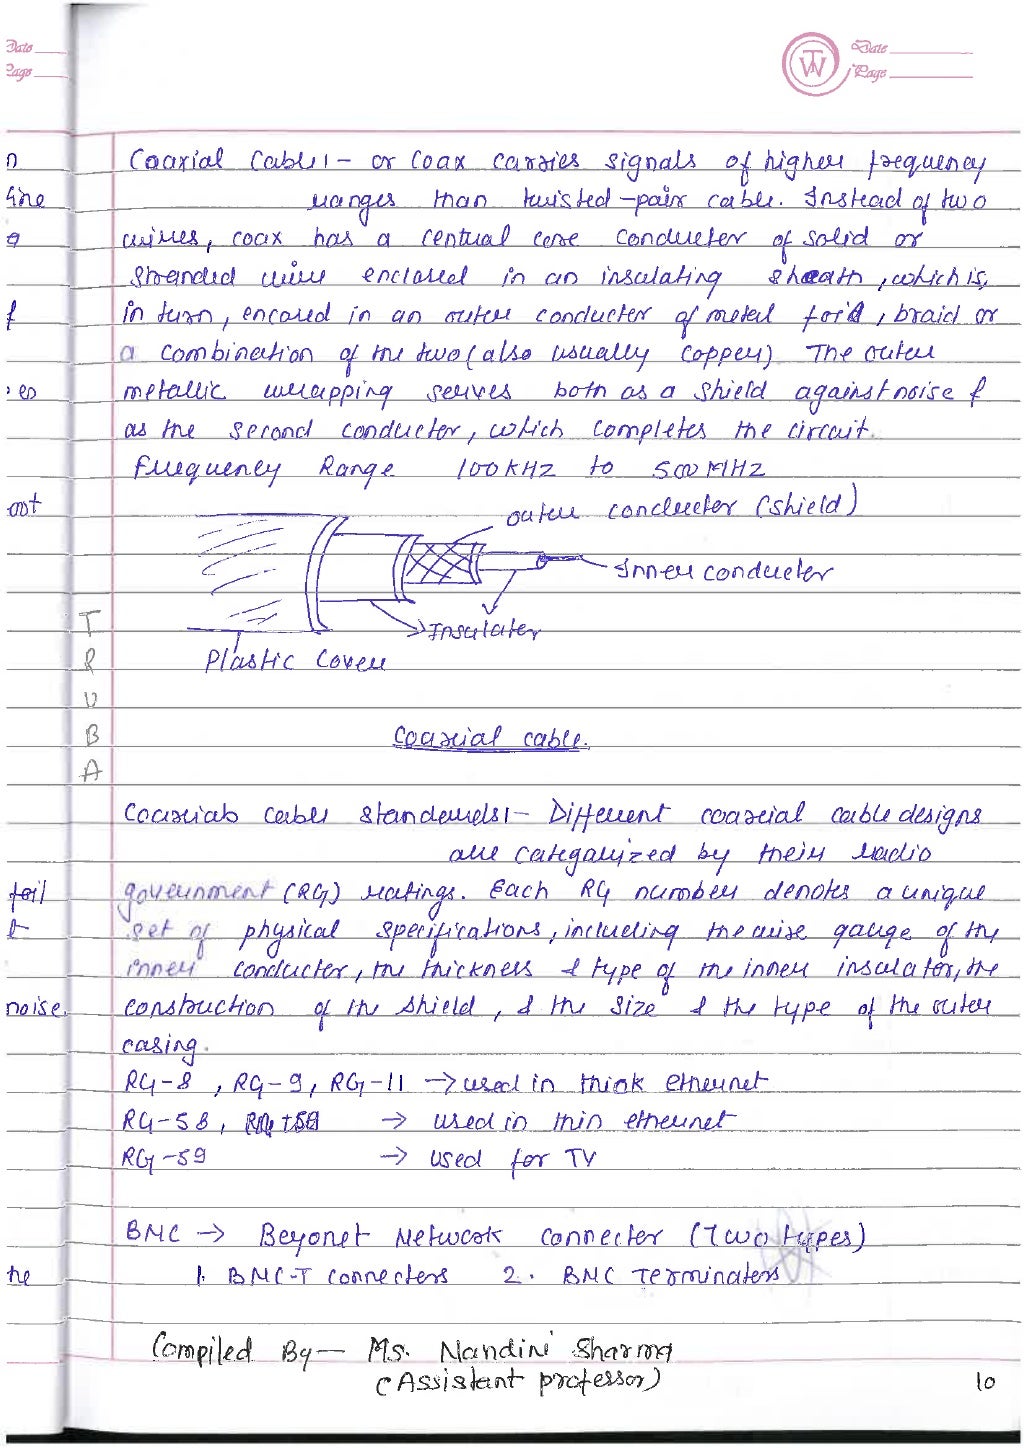 Date
Page
TW
Date
Page
Coaxial Cable :- or Coax carries signals of higher frequency
ranges than twisted-pair cable. Instead of two
wires, coax has a central core conductor of solid or
stranded wire enclosed in an insulating sheath, which is,
in turn, encased in an outer conductor of metal foil, braid or
a combination of the two (also usually copper). The outer
metallic wrapping serves both as a shield against noise &
as the second conductor, which completes the circuit.
Frequency Range 100KHZ to 500MHZ
outer conductor (shield)
Inner conductor
Insulator
Plastic Cover
Coaxial cable.
Coaxial cable standards :- Different coaxial cable designs
are categorized by their radio
government (RG) ratings. Each RG number denotes a unique
set of physical specifications, including the wire gauge of the
inner conductor, the thickness & type of the inner insulator, the
construction of the shield, & the size & the type of the outer
casing.
RG-8, RG-9, RG-11 → used in thick ethernet
RG-58, → used in thin ethernet
RG-59 → used for TV
BNC → Beyonet Network Connector (Two types)
1. BNC-T Connectors 2. BNC Terminators
Compiled By— Ms. Nandini Sharma
(Assistant professor)
10
T
R
U
B
A
n
line
f
oot
foil
t
noise.
he